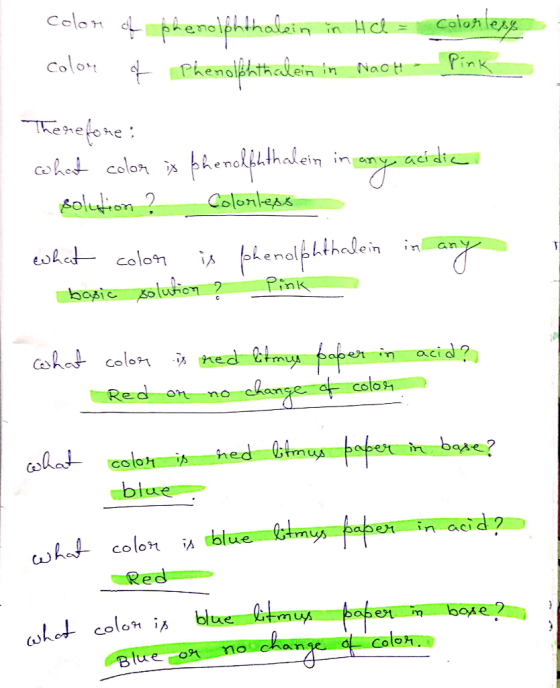 Color of phenolphthalein in HCl = Colorless
Color of Phenolphthalein in NaOH - Pink
Therefore:
what color is phenolphthalein in any acidic
solution? Colorless
what color is phenolphthalein in any
basic solution? Pink
what color is red litmus paper in acid?
Red or no change of color
what color is red litmus paper in base?
blue.
what color is blue litmus paper in acid?
Red
what color is blue litmus paper in base?
Blue or no change of color.